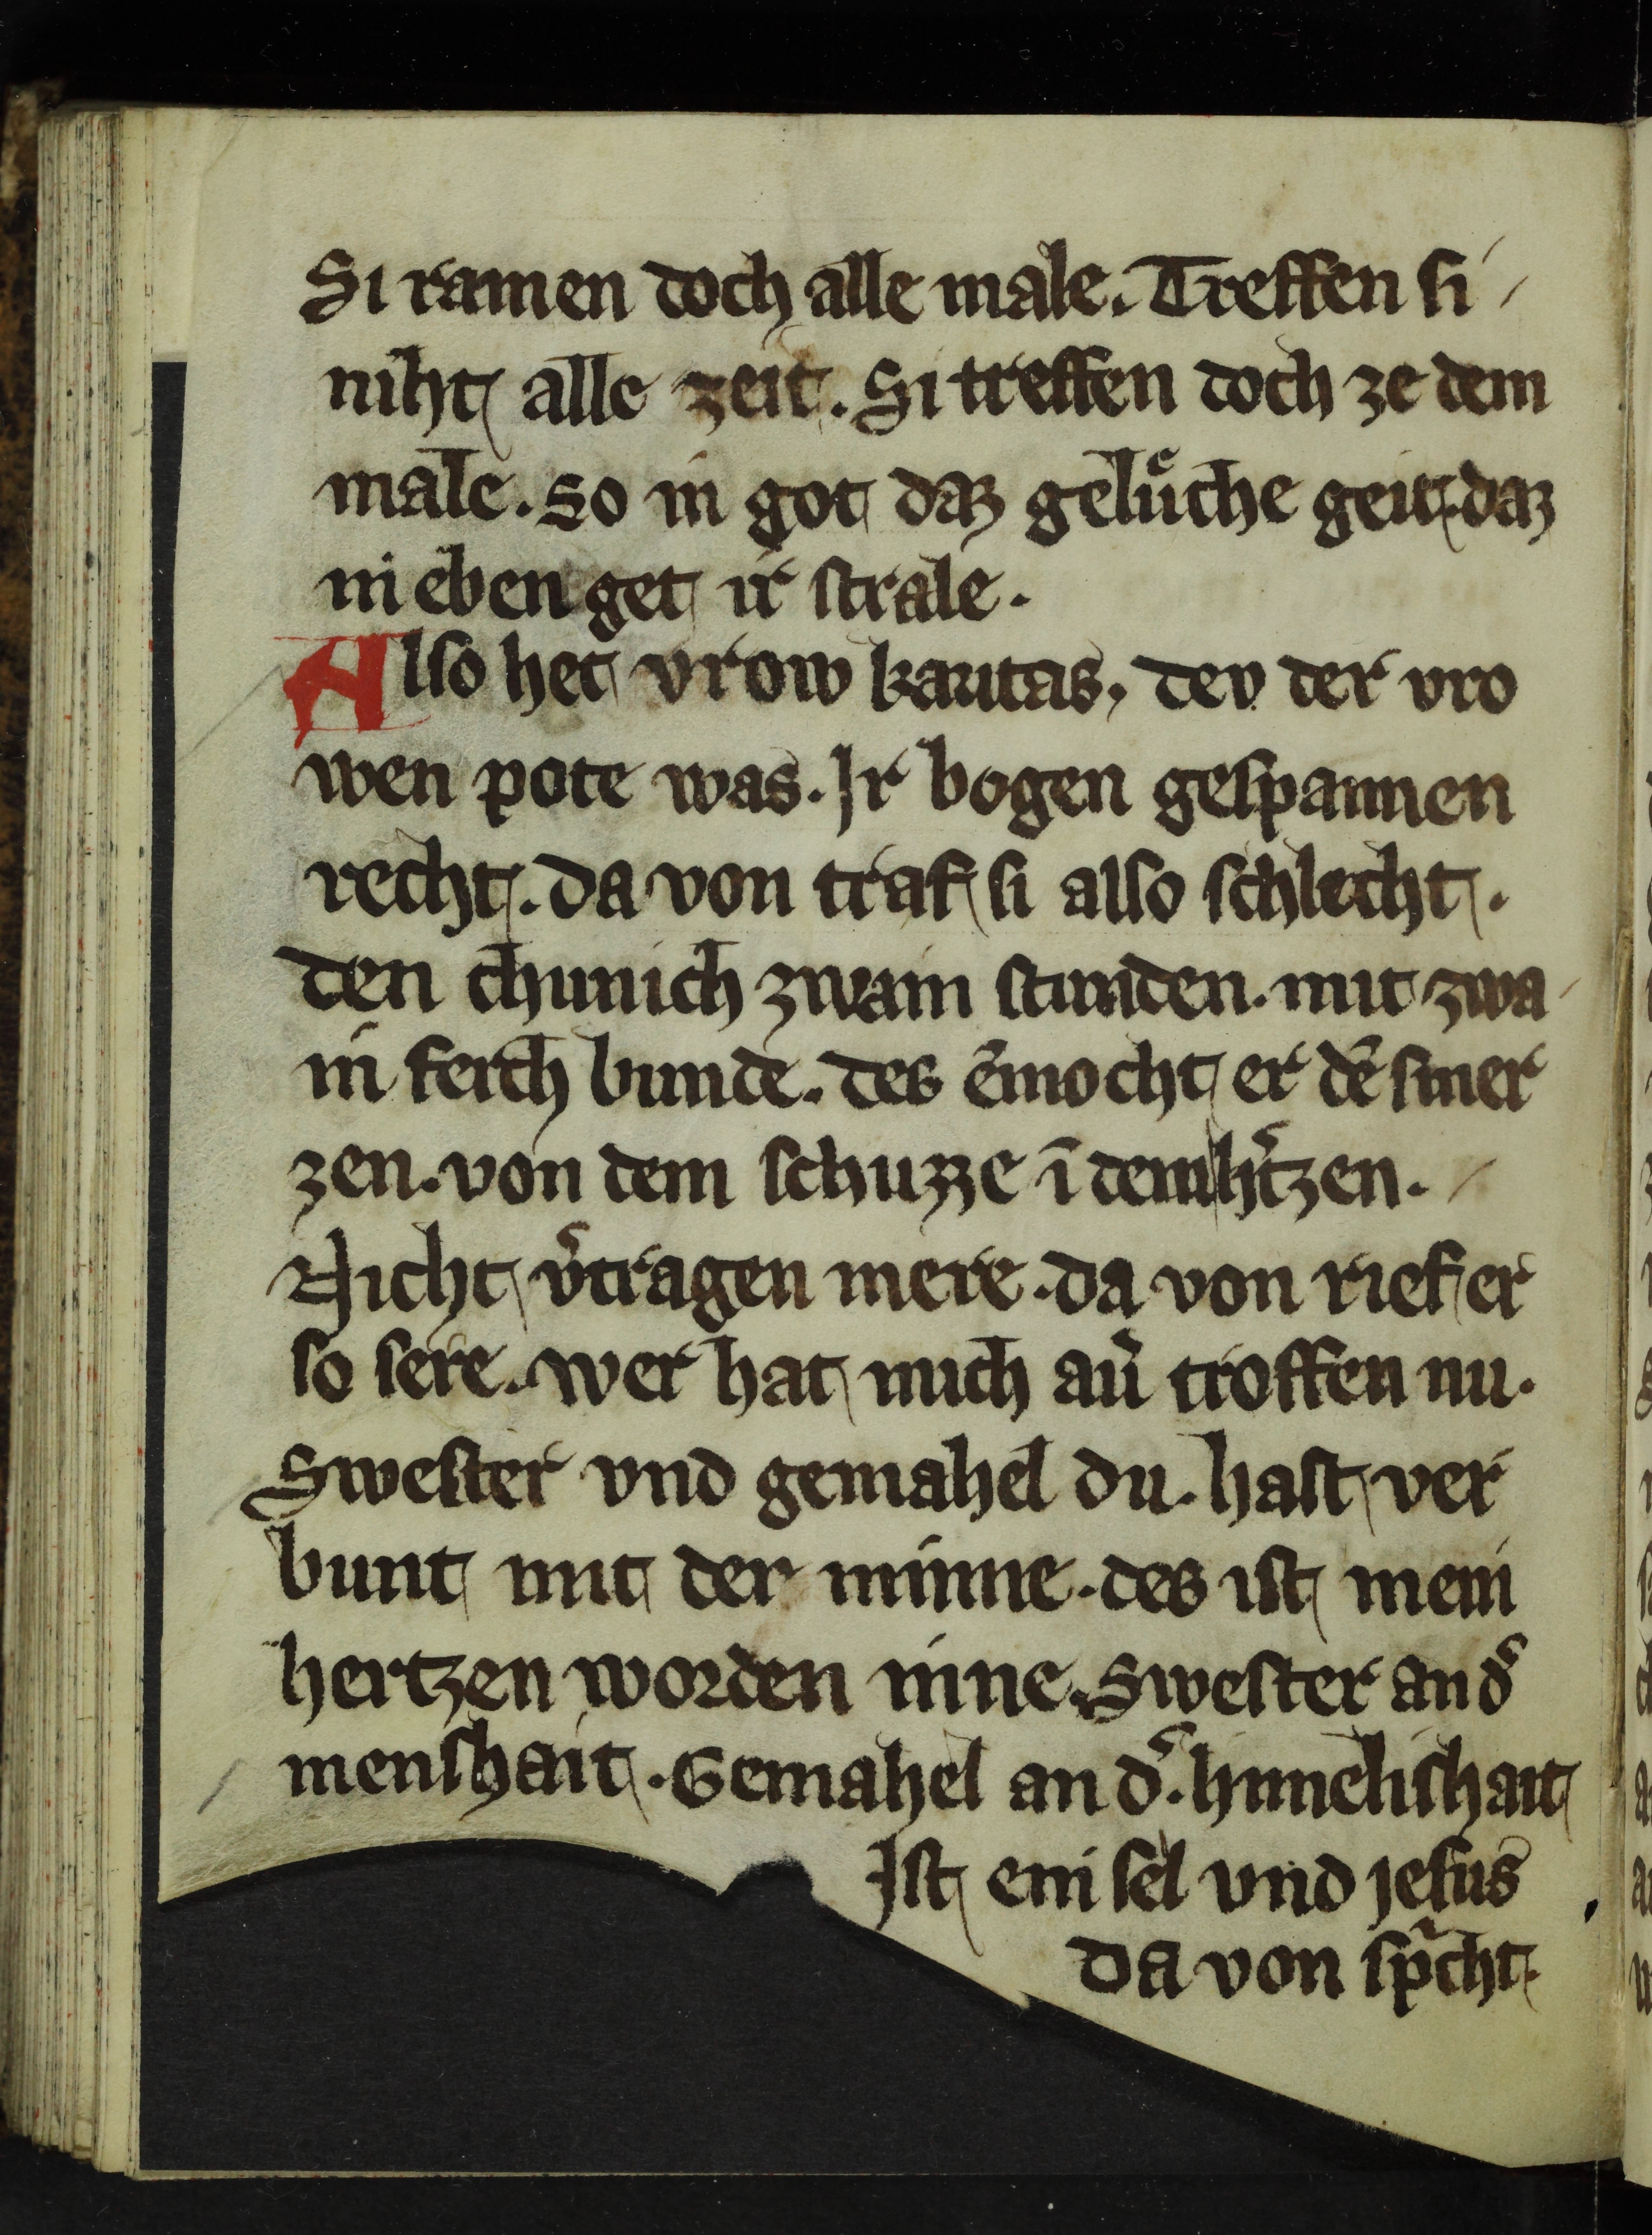 Si ramen doch alle male. Treffen si
niht alle zeit. Si treffen doch ze dem
male. So in got daz gelu̍che geit. daz
in eben get ir strale.
Also het vrow karitas, dev der vro
wen pote was. Jr bogen gespannen
recht. da von traf si also schlecht.
den chunich zwain stunden. mit zwa
in ferch bunde. des e̅mocht er de̅ smer
zen. von dem schuzze i̅ dem h̓tzen.
Nicht v̓tragen mere. da von rief er
so sere. wer hat mich an̓ troffen nu.
Swester vnd gemahel du. hast ver
bunt mit der minne. des ist mein
hertzen worden inne. Swester an d̓
menshait. Gemahel an d̓. himelishait
Jst ein sel vnd jesus
Da von sp̓cht.